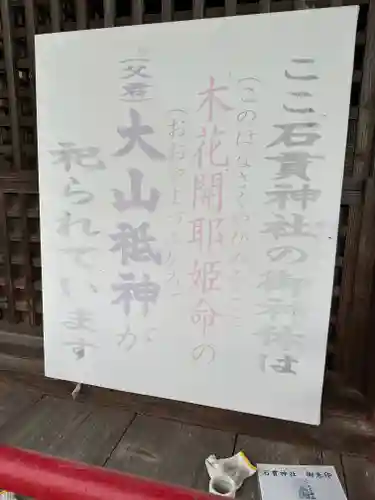 ここ石貫神社の御祭神は
(このはなさくやひめのみこと)
木花開耶姫命の
(おおやまつみのかみ)
(父君)大山祗神が
祀られています
石貫神社 御朱印